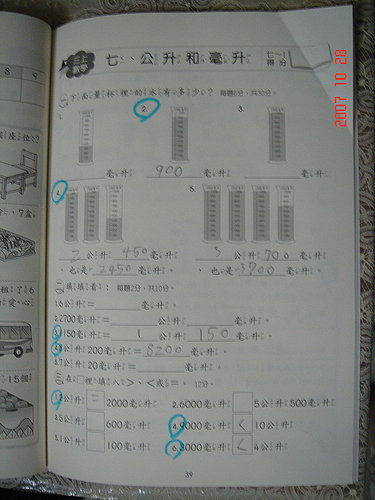 三上
七、公升和毫升
七~1
得分
2007 10 28
8 9
一 下面量杯裡的水有多少? 每題6分,共30分。
2. 3.
毫升 900 毫升 毫升
4. 5.
2 公升 450 毫升 3 公升 700 毫升
也是 2450 毫升。 也是 3700 毫升。
二 填填看: 每題2分,共10分。
1.6公升= 毫升。
2.2700毫升= 公升 毫升。
150毫升= 1 公升 150 毫升。
公升200毫升= 8200 毫升。
5.7公升20毫升= 毫升。
三 在□裡填入>、<或=。 12分。
公升 = 2000毫升 2.6000毫升 5公升500毫升
3.5公升 600毫升 4.9000毫升 < 10公升
5.1公升 100毫升 6.3000毫升 < 4公升
39
座位?
7盒
租了16
15個